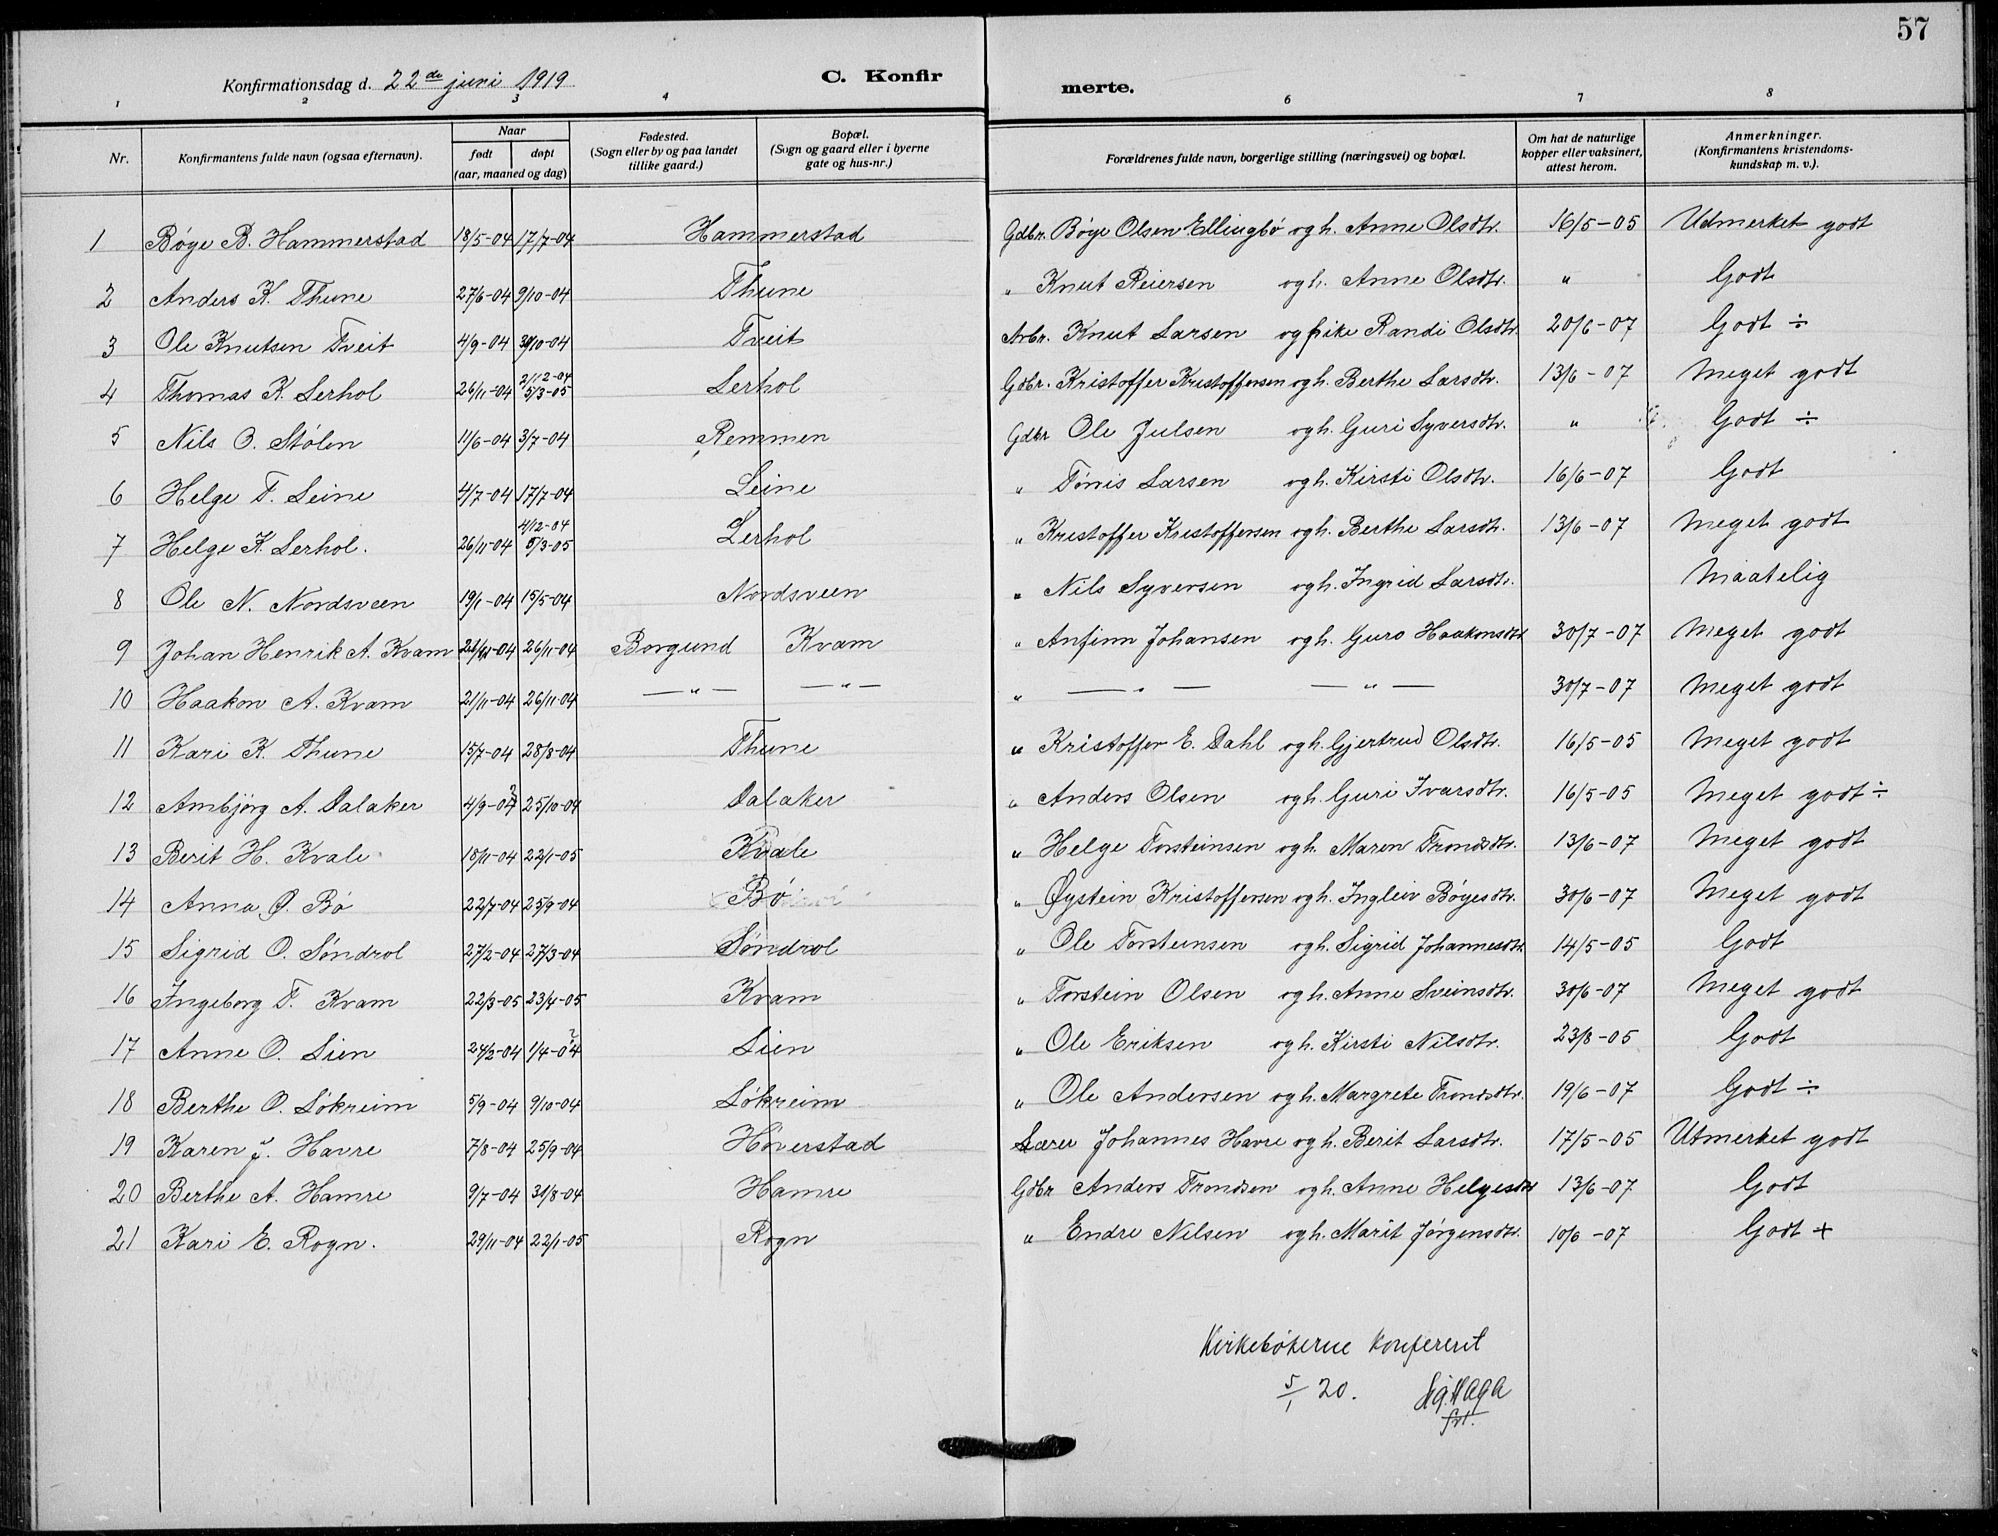 57
Konfirmationsdag d. 22de juni 1919 C. Konfirmerte.
1 2 3 4 6 7 8
Nr. | Konfirmantens fulde navn (ogsaa efternavn). | Naar født døpt (aar, maaned og dag) | Fødested. (Sogn eller by og paa landet tillike gaard.) | Bopæl. (Sogn og gaard eller i byerne gate og hus-nr.) | Forældrenes fulde navn, borgerlige stilling (næringsvei) og bopæl. | Om hat de naturlige kopper eller vaksinert, attest herom. | Anmerkninger. (Konfirmantens kristendomskundskap m. v.).
1 Bøye B. Hammerstad 18/5-04 17/7-04 Hammerstad Gdbr. Bøye Olsen Ellingbø og h. Anne Olsdtr. 16/5-05 Udmerket godt
2 Anders K. Thune 27/6-04 9/10-04 Thune " Knut Reiersen og h. Anne Olsdtr. " Godt
3 Ole Knutsen Tveit 4/9-04 30/10-04 Tveit Arbr. Knut Larsen og pike Randi Olsdtr. 20/6-07 Godt ÷
4 Thomas K. Lerhol 26/11-04 2/12-04 5/3-05 Lerhol Gdbr. Kristoffer Kristoffersen og h. Berthe Larsdtr. 13/6-07 Meget godt
5 Nils O. Stølen 11/6-04 3/7-04 Remmen Gdbr Ole Julsen og h. Guri Syversdtr. " Godt ÷
6 Helge T. Leine 4/7-04 17/7-04 Leine " Tønis Larsen og h. Kirsti Olsdtr. 16/6-07 Godt
7 Helge K. Lerhol. 26/11-04 4/12-04 5/3-05 Lerhol " Kristoffer Kristoffersen og h. Berthe Larsdtr. 13/6-07 Meget godt
8 Ole N. Nordsveen 19/1-04 15/5-04 Nordsveen " Nils Syversen og h. Ingrid Larsdtr. Maatelig
9 Johan Henrik A. Kvam 21/11-04 26/11-04 Borgund Kvam " Anfinn Johansen og h. Guro Haakonsdtr 30/7-07 Meget godt
10 Haakon A. Kvam 21/11-04 26/11-04 — " — — " — " — " — — " — 30/7-07 Meget godt
11 Kari K. Thune 15/7-04 28/8-04 Thune " Kristoffer E. Dahl og h. Gjertrud Olsdtr. 16/5-05 Meget godt
12 Ambjørg A. Dalaker 4/9-04? 25/10-04 Dalaker " Anders Olsen og h. Guri Ivarsdtr. 16/5-05 Meget godt ÷
13 Berit H. Kvale 18/11-04 22/1-05 Kvale " Helge Torsteinsen og h. Maren Trondsdtr. 13/6-07 Meget godt
14 Anna Ø. Bø 22/7-04 25/9-04 Bø " Øystein Kristoffersen og h. Ingleiv Bøyesdtr. 30/6-07 Meget godt
15 Sigrid O. Søndrol 27/2-04 27/3-04 Søndrol " Ole Torsteinsen og h. Sigrid Johannesdtr. 14/5-05 Godt
16 Ingeborg T. Kvam 22/3-05 23/4-05 Kvam " Torstein Olsen og h. Anne Sveinsdtr. 30/6-07 Meget godt
17 Anne O. Lien 24/2-04 1/4-04? Lien " Ole Eriksen og h. Kirsti Nilsdtr. 23/8-05 Godt
18 Berthe O. Løkreim 5/9-04 9/10-04 Løkreim " Ole Andersen og h. Margrete Trondsdtr. 19/6-07 Godt ÷
19 Karen J. Havre 7/8-04 25/9-04 Høverstad Lærer Johannes Havre og h. Berit Larsdtr. 17/5-05 Utmerket godt
20 Berthe A. Hamre 9/7-04 31/8-04 Hamre Gdbr Anders Trondsen og h. Anne Helgesdtr 13/6-07 Godt
21 Kari E. Rogn. 29/11-04 22/1-05 Rogn " Endre Nilsen og h. Marit Jørgensdtr. 10/6-07 Godt +
Kirkebøkerne konfereret
5/1 20. Sig. Haga